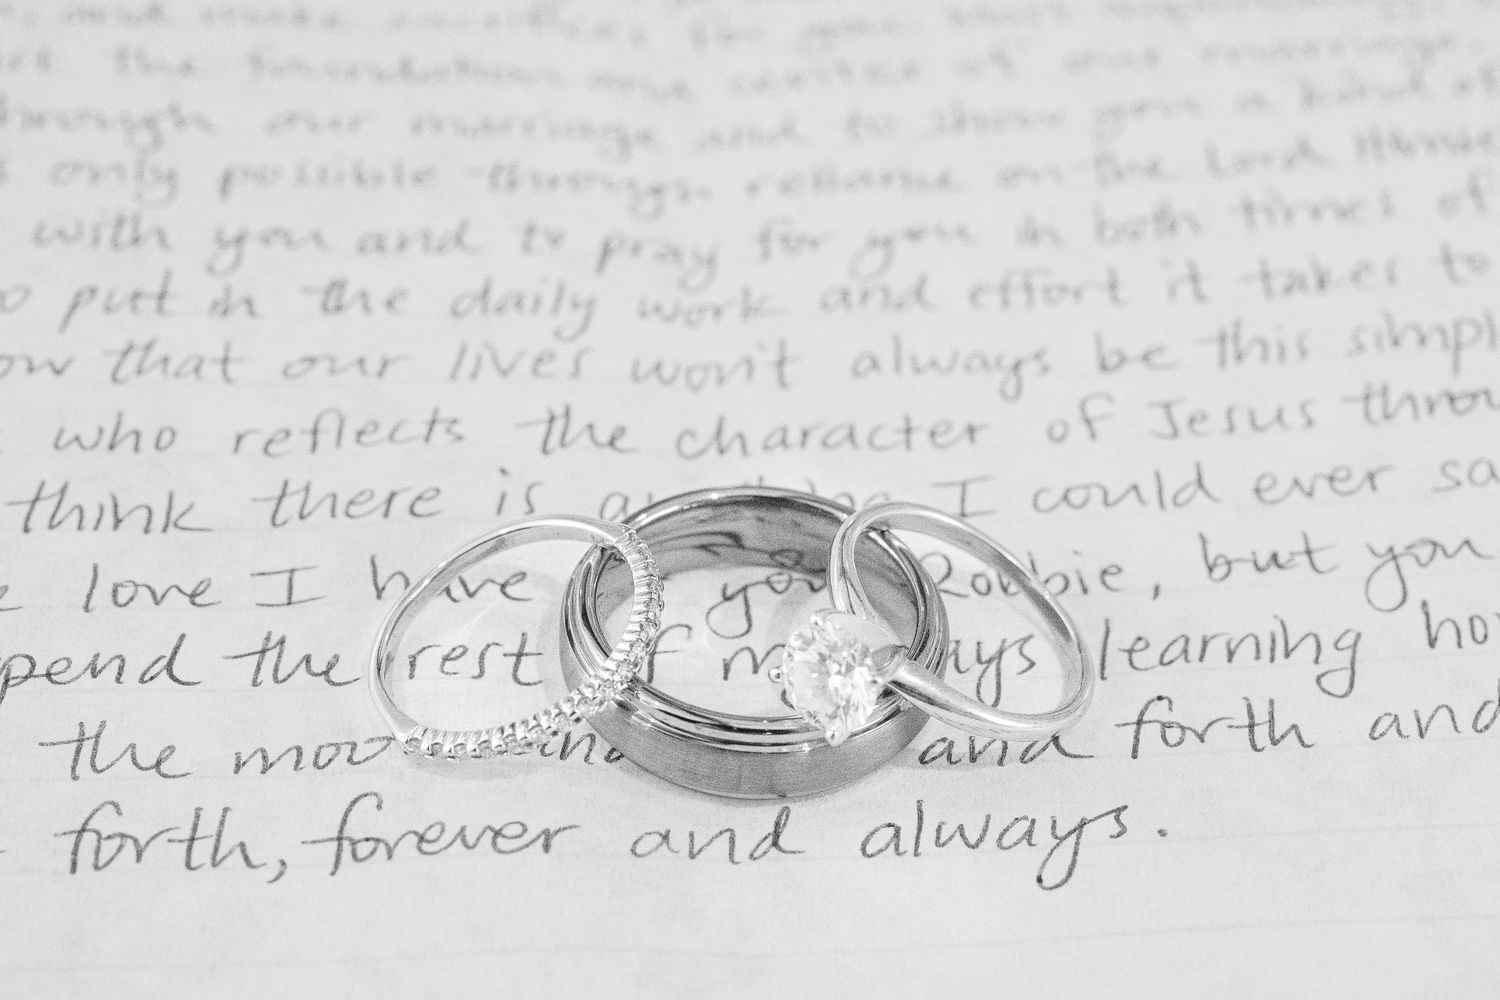 and make sacrifices for you
the foundation and center of our marriage.
through our marriage and to show you a kind of
only possible through reliance on the Lord Himse
with you and to pray for you in both times of
o put in the daily work and effort it takes to
ow that our lives won't always be this simpl
who reflects the character of Jesus throu
think there is I could ever sa
love I have you Robbie, but you
pend the rest of my days learning ho
the moo and and forth and
forth, forever and always.